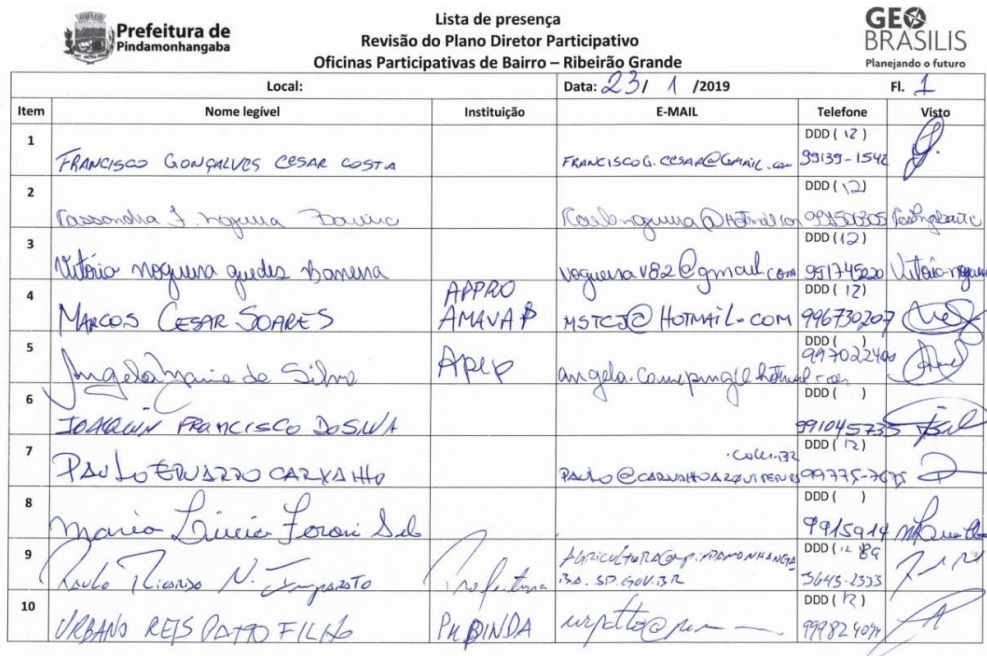 Prefeitura de
Pindamonhangaba
Lista de presença
Revisão do Plano Diretor Participativo
Oficinas Participativas de Bairro – Ribeirão Grande
GEO
BRASILIS
Planejando o futuro
Local: Data: 23/ 1 /2019 Fl. 1
Item Nome legível Instituição E-MAIL Telefone Visto
1 FRANCISCO GONÇALVES CESAR COSTA FRANCISCOG.CESAR@GMAIL.com DDD ( 12 ) 99139-1542
2 Cassandra F. DDD ( 12 )
3 Vitória nogueira guedes vogueirav82@gmail.com DDD ( 12 ) 991745220 Vitória
4 MARCOS CESAR SOARES APPRO AMAVAP MSTCJ@HOTMAIL.COM DDD ( 12 ) 996730207
5 Angela Maria da Silva DDD ( )
6 JOAQUIN FRANCISCO DOSILVA DDD ( ) 991045735
7 PAULO EDUARDO CARVALHO DDD ( 12 ) 99775-7675
8 Maria Lucia DDD ( ) 9915914
9 Paulo Ricardo N. Imparato Prefeitura AGRICULTURA@PINDAMONHANGABA.SP.GOV.BR DDD ( 12 ) 3645-2333
10 URBANO REIS PATTO FILHO PM PINDA urpatto@ DDD ( 12 ) 999824094